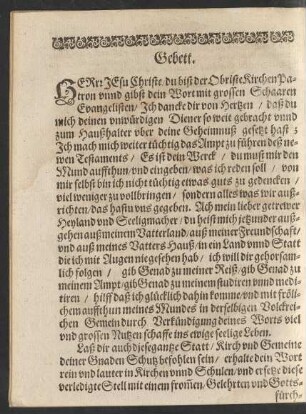 Gebett.
HERr: JEsu Christe, du bist der Obriste Kirchen Pa-
tron vnnd gibst dein Wort mit grossen Schaaren
Evangelisten / Ich dancke dir von Hertzen / daß du
mich deinen vnwürdigen Diener so weit gebracht vnnd
zum Haußhalter vber deine Geheimnuß gesetzt hast ;
Ich mach mich weiter tüchtig das Ampt zu führen deß ne-
wen Testaments / Es ist dein Werck / du must mir den
Mund auffthun / vnd eingeben / was ich reden soll / von
mir selbst bin ich nicht tüchtig etwas guts zu gedencken /
viel weniger zu vollbringen / sondern alles was wir auß-
richten / das hastu vns gegeben. Ach mein lieber getrewer
Heyland vnd Seeligmacher / du heist mich jetzunder auß-
gehen auß meinem Vatterland / auß meiner Freundschafft /
vnd auß meines Vatters Hauß / in ein Land vnnd Statt
die ich mit Augen nie gesehen hab / ich will dir gehorsam-
lich folgen / gib Genad zu meiner Reiß / gib Genad zu
meinem Ampt / gib Genad zu meinem studiren vnnd medi-
tiren / hilff daß ich glücklich dahin komme / vnd mit fröli-
chem auffthun meines Mundes in derselbigen Volckrei-
chen Gemein durch Verkündigung deines Worts viel
vnd grossen Nutzen schaffe ins ewige seelige Leben.
Laß dir auch diese gantze Statt / Kirch vnd Gemeine
deiner Gnaden Schutz befohlen sein / erhalte dein Wort
rein vnd lauter in Kirchen vnnd Schulen / vnd ersetze diese
verledigte Stell mit einem from̃en / Gelehrten vnd Gotts-
fürch-